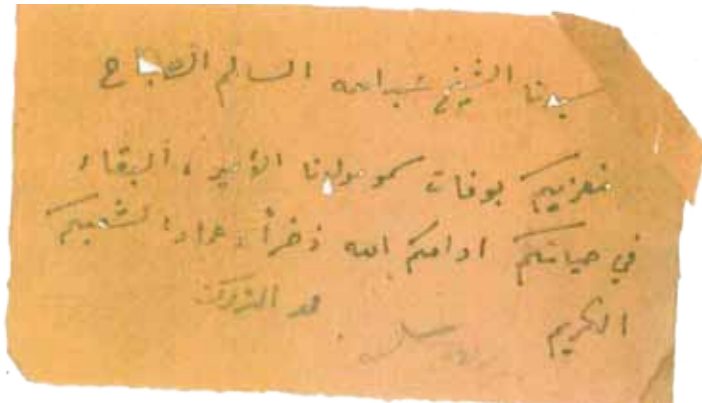 سيدنا الشيخ عبدالله السالم الصباح
نعزيكم بوفات سمو مولانا الأمير، البقاء
في حياتكم ادامكم الله ذخراً وعماداً لشعبكم
الكريم